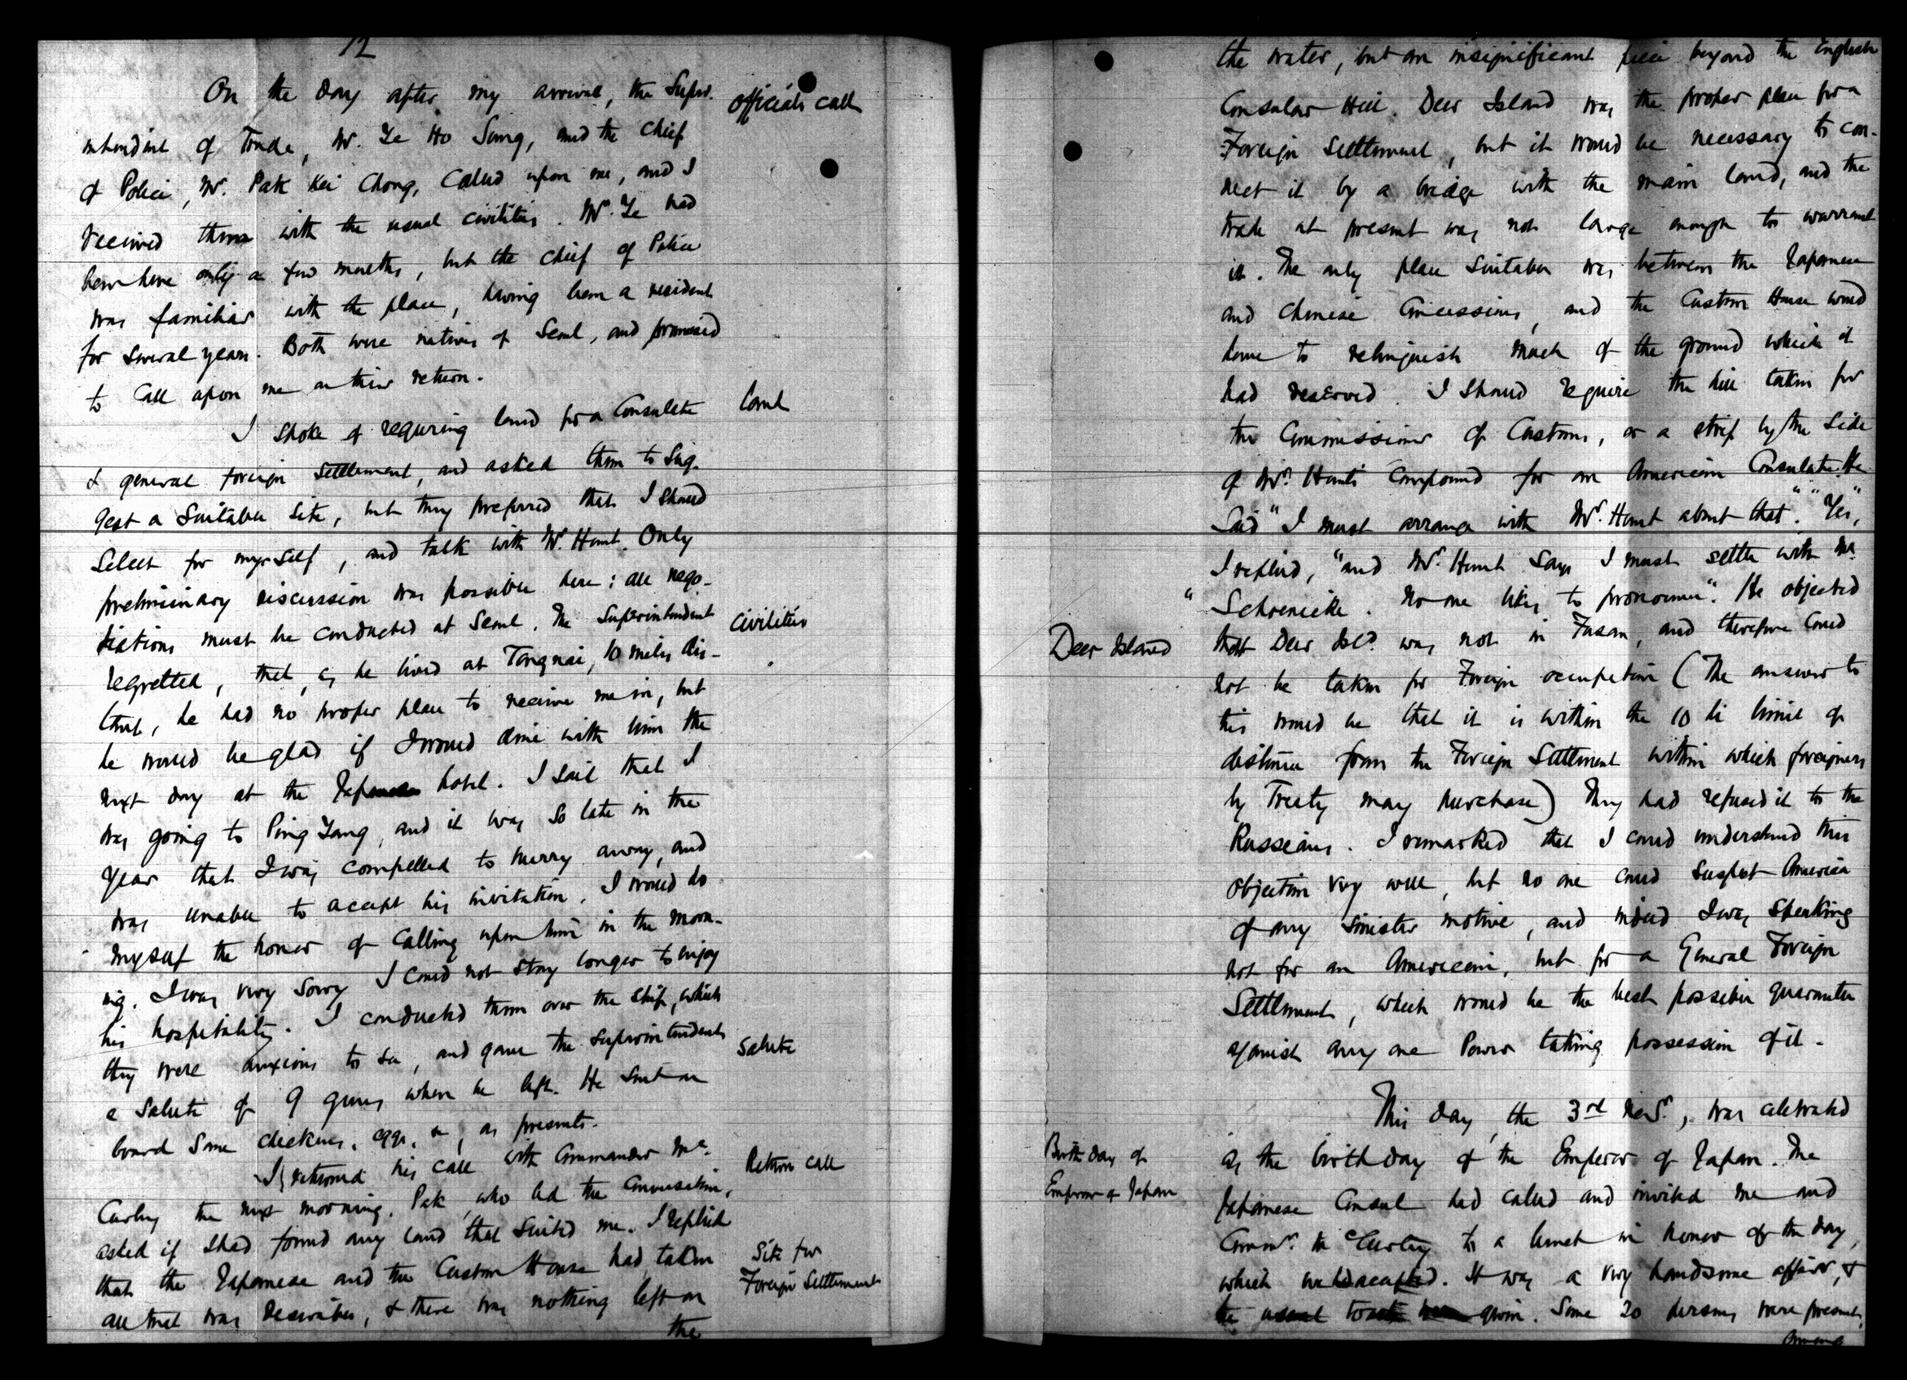 12
On the day after my arrival, the Super-
officials call
intendent of Trade, Mr. Ye Ho Sung, and the Chief
of Police, Mr. Pak Kei Chong, called upon me, and I
received them with the usual civilities. Mr. Ye had
been here only a few months, but the Chief of Police
was familiar with the place, having been a resident
for several years. Both were natives of Seoul, and promised
to call upon me on their return.
I spoke of requiring land for a Consulate
Land
& general foreign settlement, and asked them to sug-
gest a suitable site, but they preferred that I should
select for myself, and talk with Mr. Hunt. Only
preliminary discussion was possible here: all nego-
tiations must be conducted at Seoul. The Superintendent
civilities
regretted, that, as he lived at Tongnai, 10 miles dis-
tant, he had no proper place to receive me in, but
he would be glad if I would dine with him the
next day at the Japanese hotel. I said that I
was going to Ping Yang, and it was so late in the
year that I was compelled to hurry away, and
was unable to accept his invitation. I would do
myself the honor of calling upon him in the morn-
ing. I was very sorry I could not stay longer to enjoy
his hospitality. I conducted them over the ship, which
they were anxious to see, and gave the Superintendent
Salute
a salute of 9 guns when he left. He sent on
board some chickens, eggs, &c, as presents.
I returned his call with Commander Mc
Return call
Curley the next morning. Pak, who led the conversation,
asked if I had found any land that suited me. I replied
that the Japanese and the Custom House had taken
Site for
Foreign Settlement
all that was desirable, & there was nothing left on
the
the water, but an insignificant piece beyond the English
Consular Hill. Deer Island was the proper place for a
Foreign Settlement, but it would be necessary to con-
nect it by a bridge with the main land, and the
trade at present was not large enough to warrant
it. The only place suitable was between the Japanese
and Chinese Concessions, and the Custom House would
have to relinquish much of the ground which it
had reserved. I should require the hill taken for
the Commissioner of Customs, or a strip by the side
of Mr. Hunt's compound for an American Consulate. He
said "I must arrange with Mr. Hunt about that." "Yes,"
I replied, "and Mr. Hunt says I must settle with Mr.
"Schoenicke. No one likes to pronounce". He objected
Deer Island
that Deer Isld. was not in Fusan, and therefore could
not be taken for Foreign occupation (The answer to
this would be that it is within the 10 li limit of
distance from the Foreign Settlement within which foreigners
by Treaty may purchase) They had refused it to the
Russians. I remarked that I could understand this
objection very well, but no one could suspect America
of any sinister motive, and indeed I was speaking
not for an American, but for a General Foreign
Settlement, which would be the best possible guarantee
against any one Power taking possession of it.
This day, the 3rd Novr., was celebrated
Birthday of
Emperor of Japan
as the birthday of the Emperor of Japan. The
Japanese Consul had called and invited me and
Commr. McCurley to a lunch in honor of the day,
which we had accepted. It was a very handsome affair, &
the usual toasts were given. Some 20 persons were present,
among